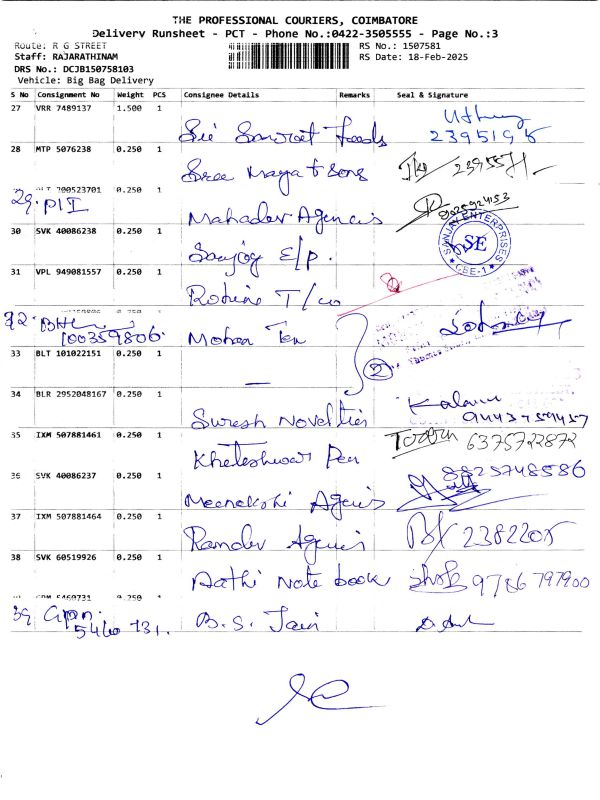 THE PROFESSIONAL COURIERS, COIMBATORE
Delivery Runsheet - PCT - Phone No.:0422-3505555 - Page No.:3
Route: R G STREET RS No.: 1507581
Staff: RAJARATHINAM RS Date: 18-Feb-2025
DRS No.: DCJB150758103
Vehicle: Big Bag Delivery
S No Consignment No Weight PCS Consignee Details Remarks Seal & Signature
27 VRR 7489137 1.500 1
2395195
28 MTP 5076238 0.250 1
Sree Maya & Sons
700523701 0.250 1
29. PII
Mahadev Agencis
30 SVK 40086238 0.250 1
Sanjog E/p.
SANJAY ENTERPRISES
SE
CBE-1
31 VPL 949081557 0.250 1
Rohini T/co
32.
100359806.
Mohan
33 BLT 101022151 0.250 1
2
34 BLR 2952048167 0.250 1
Suresh Novelties
9443759457
35 IXM 507881461 0.250 1
Kheteshwar Pen
6375722872
36 SVK 40086237 0.250 1
8825748586
Meenakshi Agencis
37 IXM 507881464 0.250 1
Ramdev Agencis
2382205
38 SVK 60519926 0.250 1
Aathi Note book
9786797900
39
5460731.
B. S. Jain